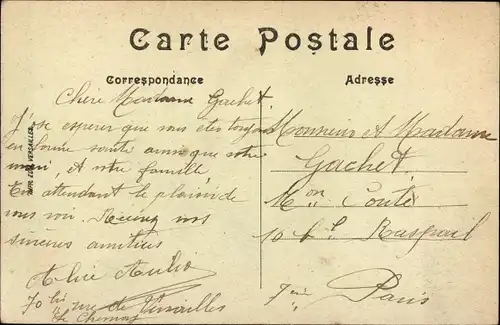 Carte Postale
Correspondance
Adresse
Chère Madame Gachet
J'ose esperer que vous etes toujours
en bonne santé ainsi que votre
mari, et votre famille,
En attendant le plaisir de
vous voir. Recevez nos
sincères amitiés
Alice
70 bis rue de Versailles
Le Chesnay
Monsieur et Madame
Gachet
Mon Conte
10 Bd Raspail
7ème Paris